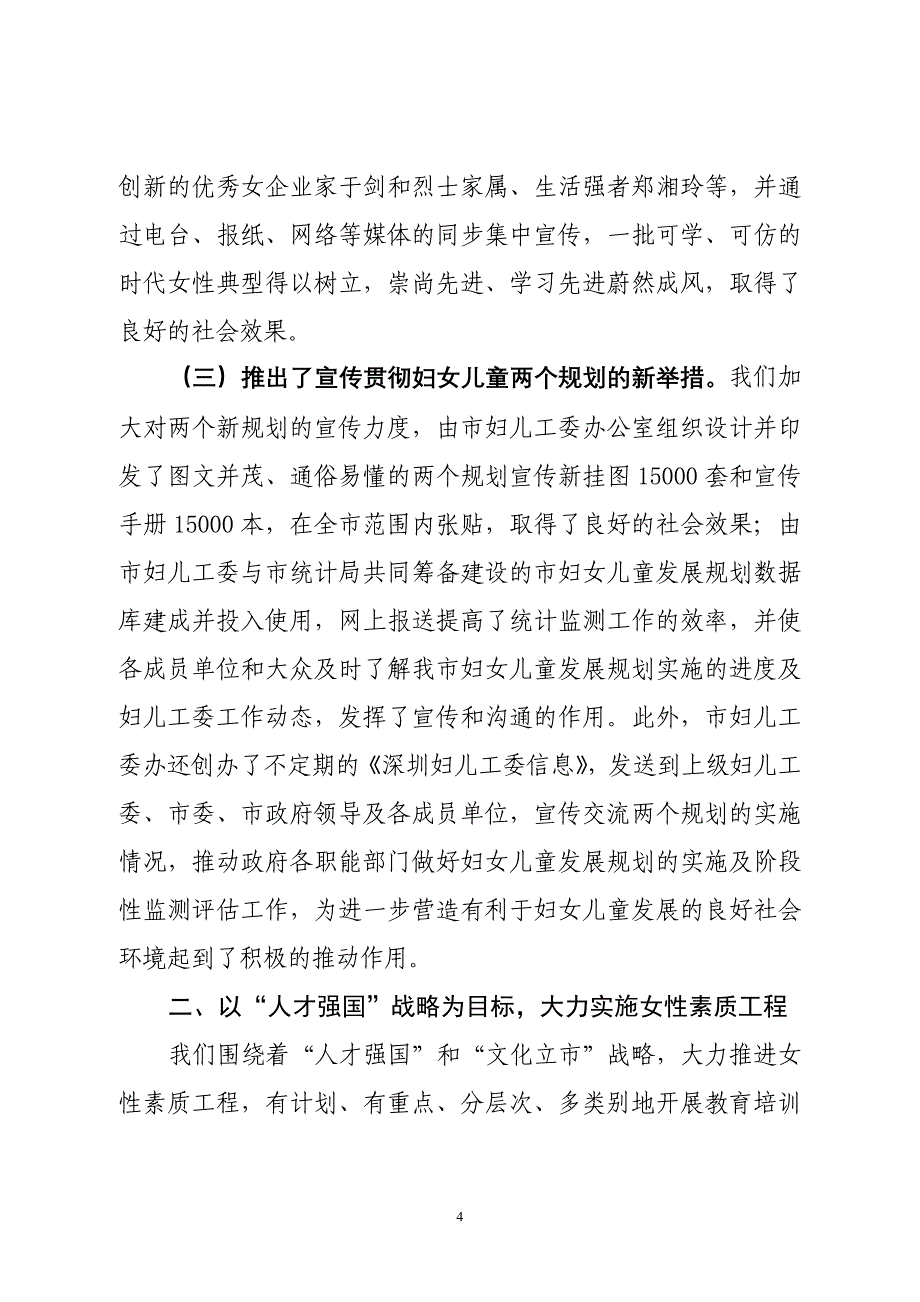 创新的优秀女企业家于剑和烈士家属、生活强者郑湘玲等，并通
过电台、报纸、网络等媒体的同步集中宣传，一批可学、可仿的
时代女性典型得以树立，崇尚先进、学习先进蔚然成风，取得了
良好的社会效果。
（三）推出了宣传贯彻妇女儿童两个规划的新举措。我们加
大对两个新规划的宣传力度，由市妇儿工委办公室组织设计并印
发了图文并茂、通俗易懂的两个规划宣传新挂图 15000 套和宣传
手册 15000 本，在全市范围内张贴，取得了良好的社会效果；由
市妇儿工委与市统计局共同筹备建设的市妇女儿童发展规划数据
库建成并投入使用，网上报送提高了统计监测工作的效率，并使
各成员单位和大众及时了解我市妇女儿童发展规划实施的进度及
妇儿工委工作动态，发挥了宣传和沟通的作用。此外，市妇儿工
委办还创办了不定期的《深圳妇儿工委信息》，发送到上级妇儿工
委、市委、市政府领导及各成员单位，宣传交流两个规划的实施
情况，推动政府各职能部门做好妇女儿童发展规划的实施及阶段
性监测评估工作，为进一步营造有利于妇女儿童发展的良好社会
环境起到了积极的推动作用。
二、以“人才强国”战略为目标，大力实施女性素质工程
我们围绕着“人才强国”和“文化立市”战略，大力推进女
性素质工程，有计划、有重点、分层次、多类别地开展教育培训
4